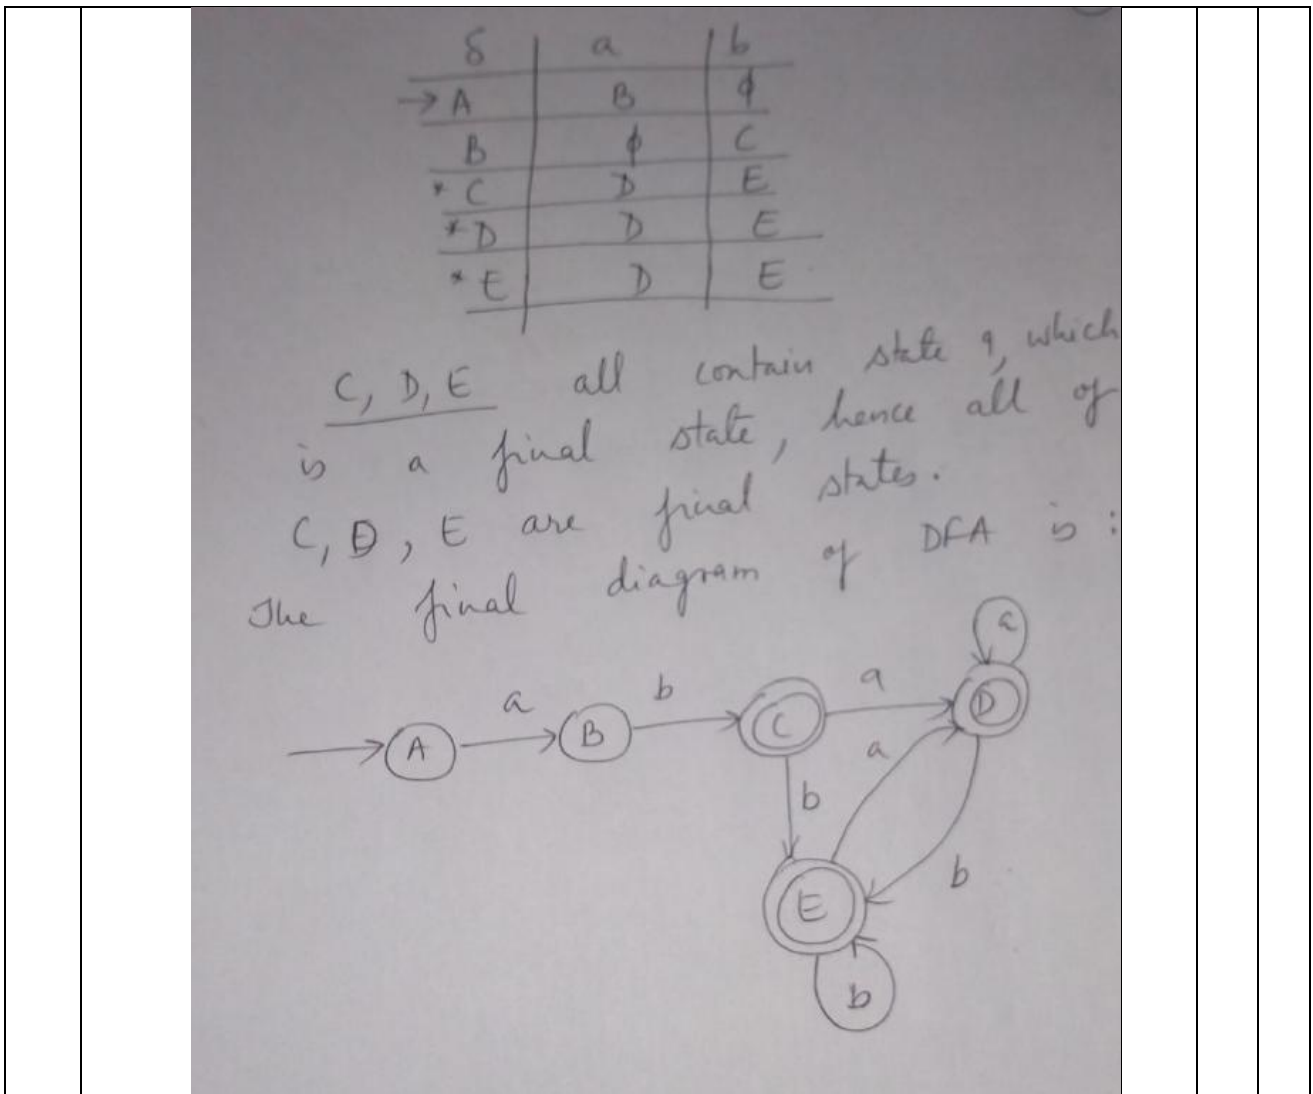 δ a b
→ A B ϕ
B ϕ C
* C D E
* D D E
* E D E
C, D, E all contain state 9, which
is a final state, hence all of
C, D, E are final states.
The final diagram of DFA is :
a
a b a D
A B C a
b
b
E
b